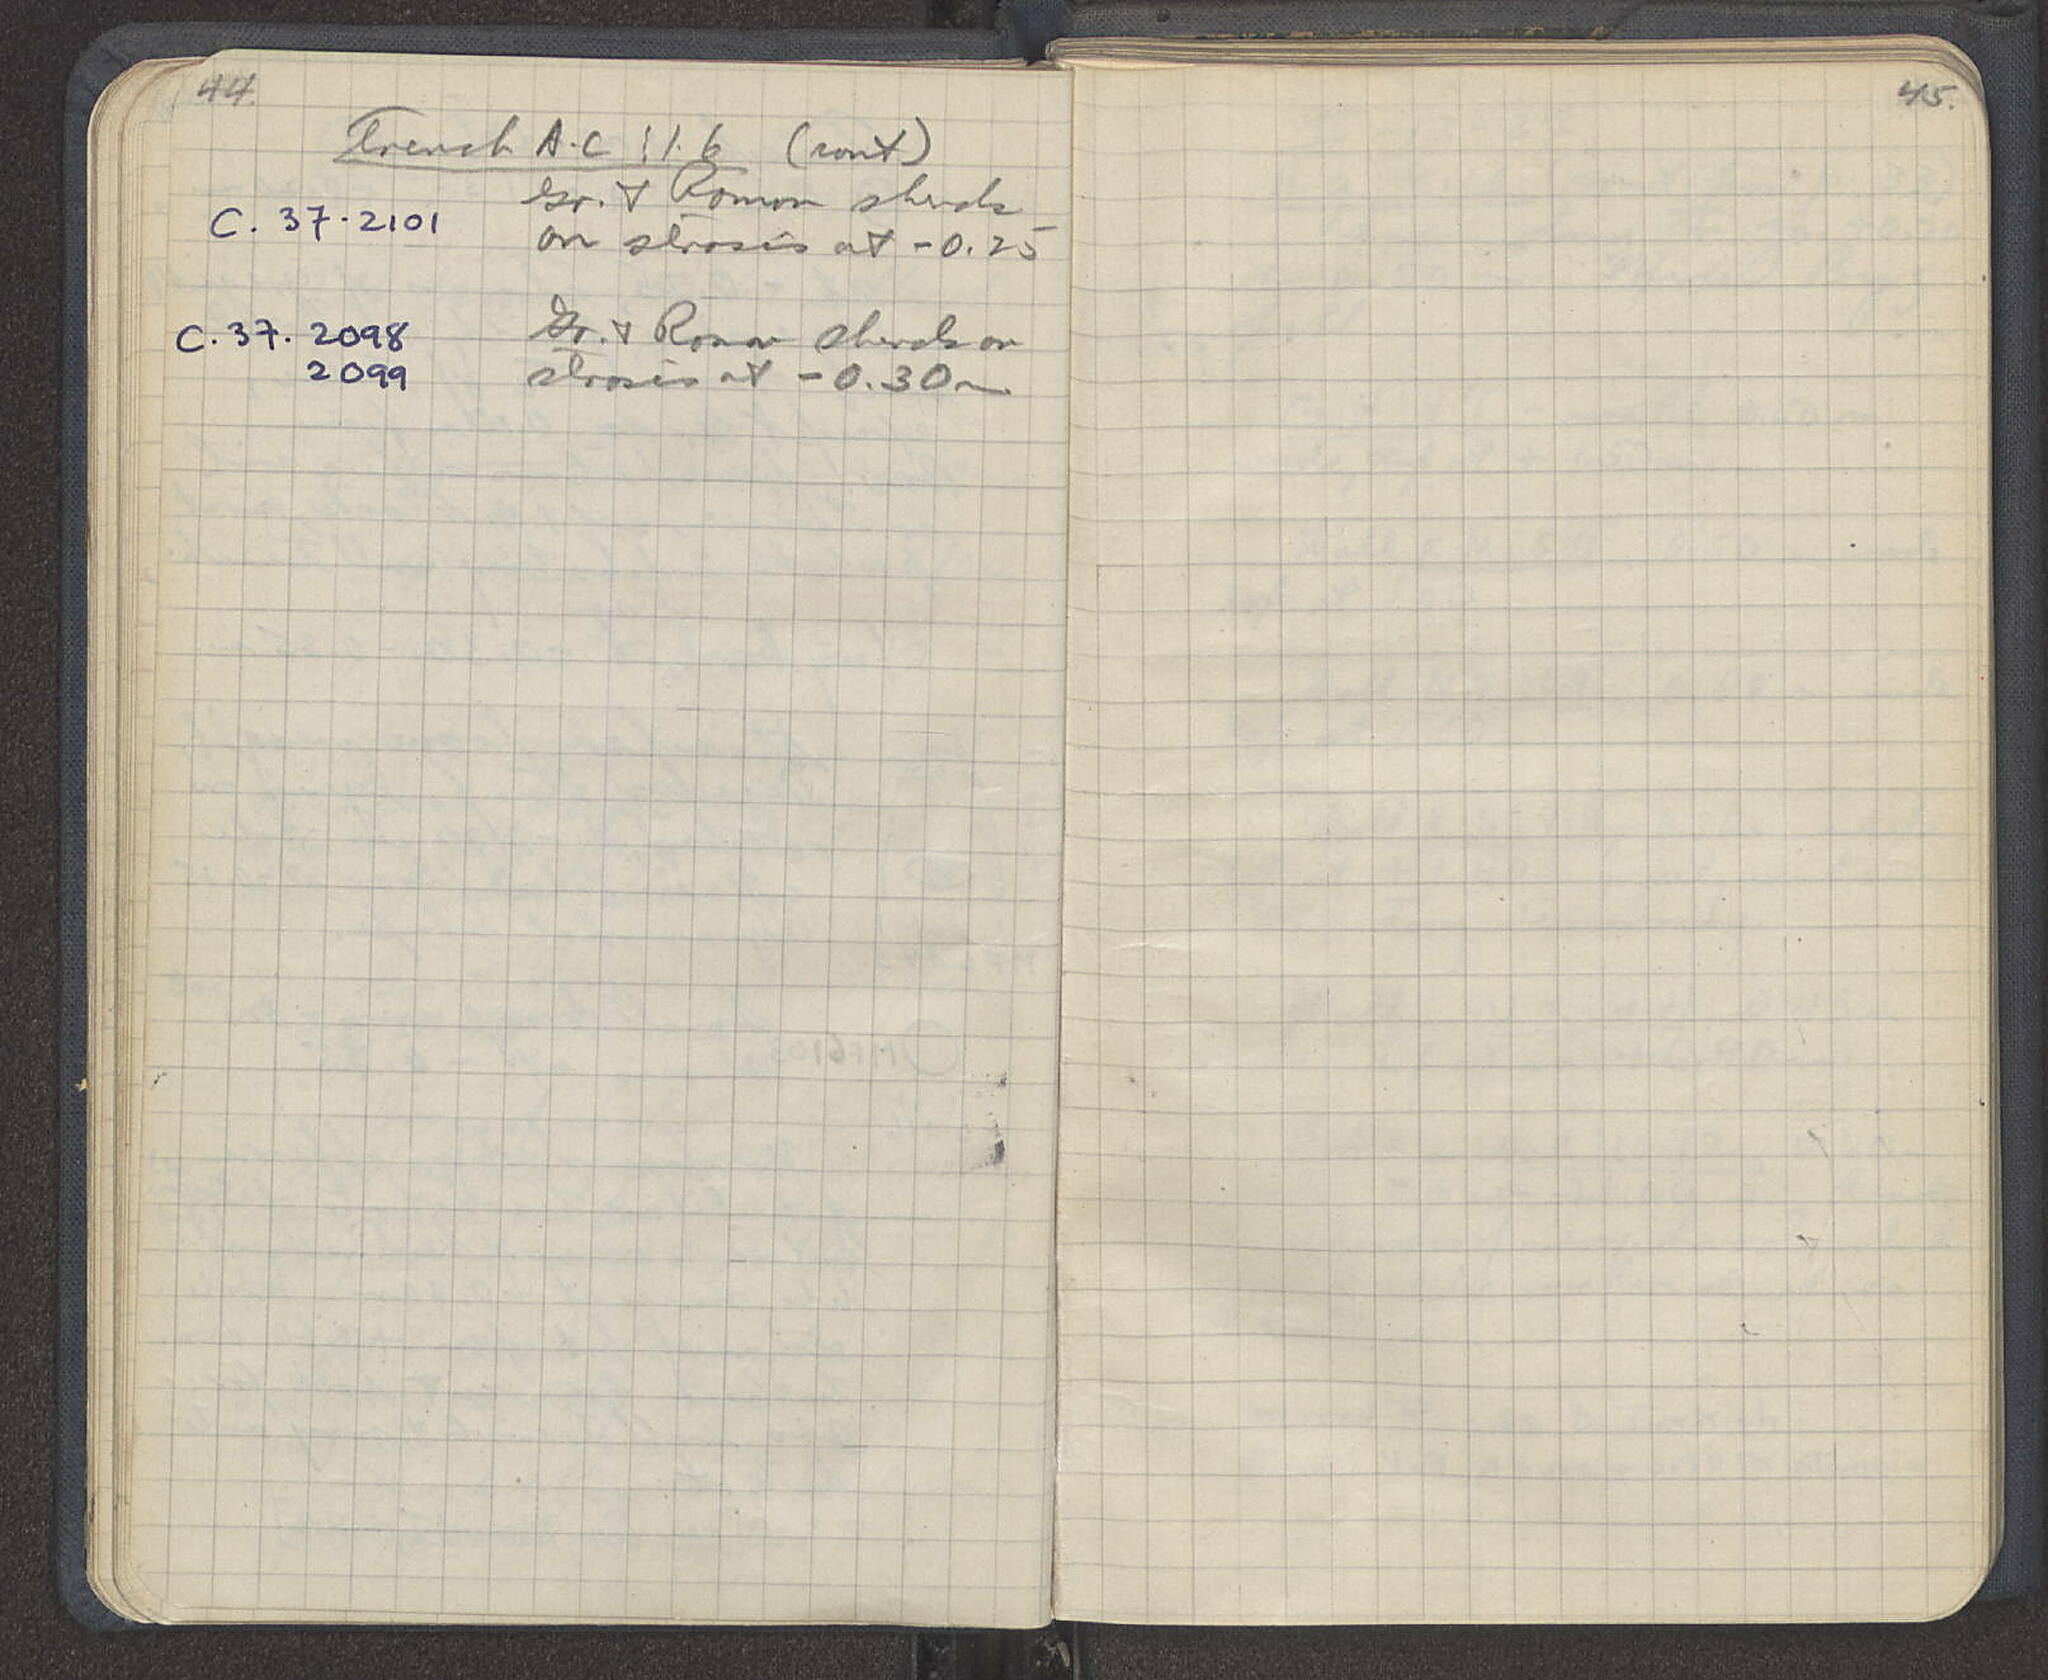 44.
Trench A-C 11.6 (cont)
C. 37-2101
Gr. + Roman sherds
on strosis at -0.25
C. 37. 2098
2099
Gr. + Roman sherds on
strosis at -0.30m
45.